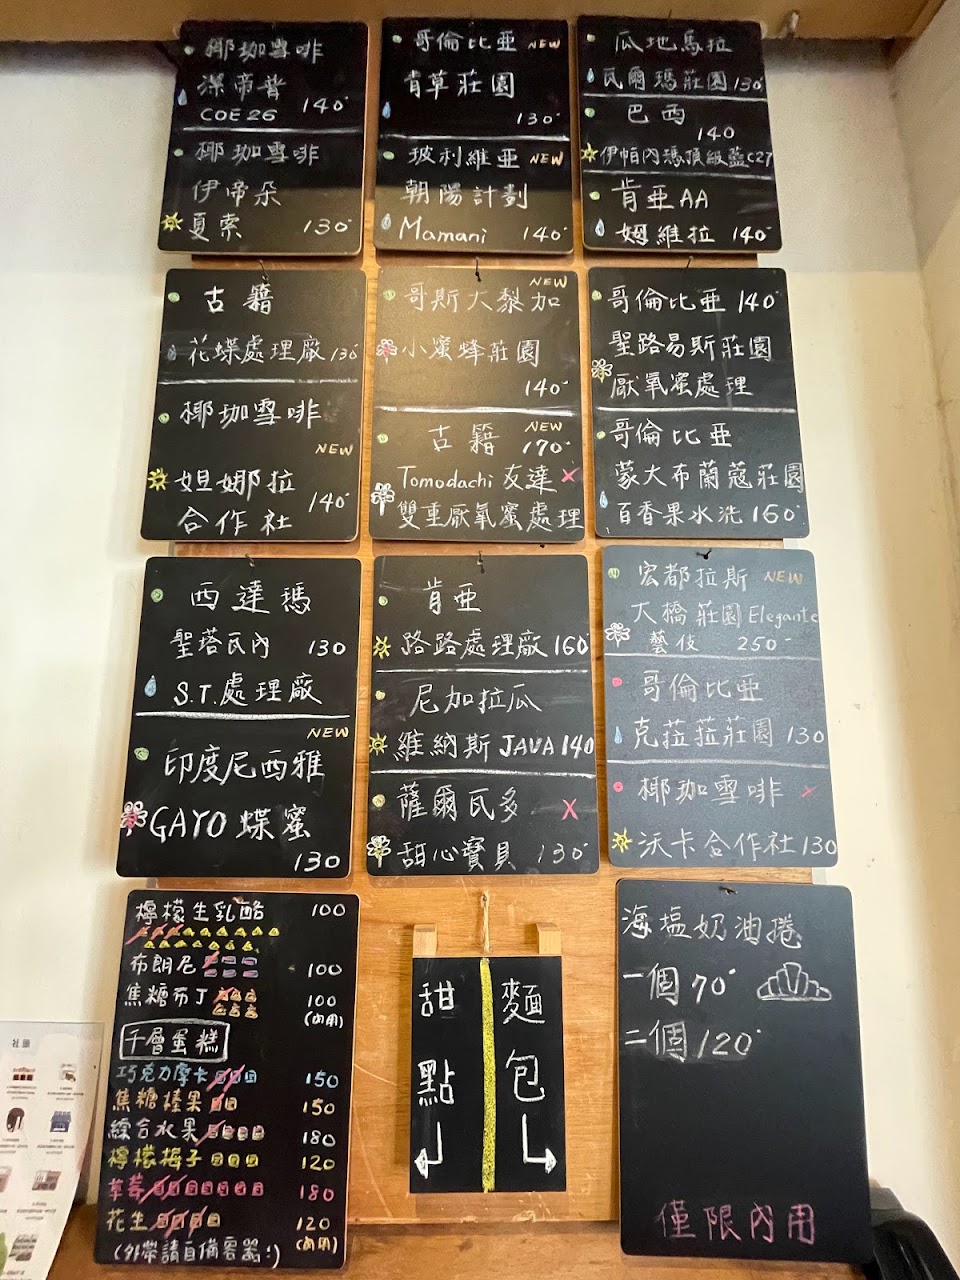 耶珈雪啡
潔蒂普
COE 26 140
耶珈雪啡
伊帝朵
夏索 130
哥倫比亞 NEW
肯草莊園
130
玻利維亞 NEW
朝陽計劃
Mamani 140
瓜地馬拉
瓦爾瑪莊園 130
巴西
140
伊帕內瑪頂級藍C27
肯亞AA
姆維拉 140
古籍
花蝶處理廠 130
椰珈雪啡
NEW
妲娜拉
合作社 140
NEW
哥斯大黎加
小蜜蜂莊園
140
NEW
古籍 170
Tomodachi 友達 X
雙重厭氧蜜處理
哥倫比亞 140
聖路易斯莊園
厭氧蜜處理
哥倫比亞
蒙大布蘭蔻莊園
百香果水洗 160
西達瑪
聖塔瓦內 130
S.T.處理廠
NEW
印度尼西雅
GAYO 蝶蜜
130
肯亞
路路處理廠 160
尼加拉瓜
維納斯 JAVA 140
薩爾瓦多 X
甜心寶貝 130
宏都拉斯 NEW
大橋莊園 Elegante
藝伎 250
哥倫比亞
克菈菈莊園 130
椰珈雪啡 X
沃卡合作社 130
檸檬生乳酪 100
布朗尼 100
焦糖布丁 100
(內用)
千層蛋糕
巧克力摩卡 150
焦糖榛果 150
綜合水果 180
檸檬梅子 120
草莓 180
花生 120
(內用)
(外帶請自備容器!)
甜點
麵包
海塩奶油捲
一個 70
二個 120
僅限內用